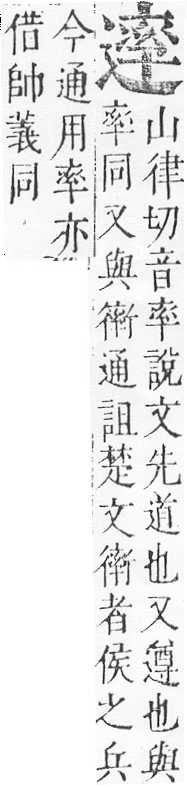 𨘇
山律切音率說文先道也又遵也與
率同又與䘗通詛楚文䘗者侯之兵
今通用率亦
借帥義同